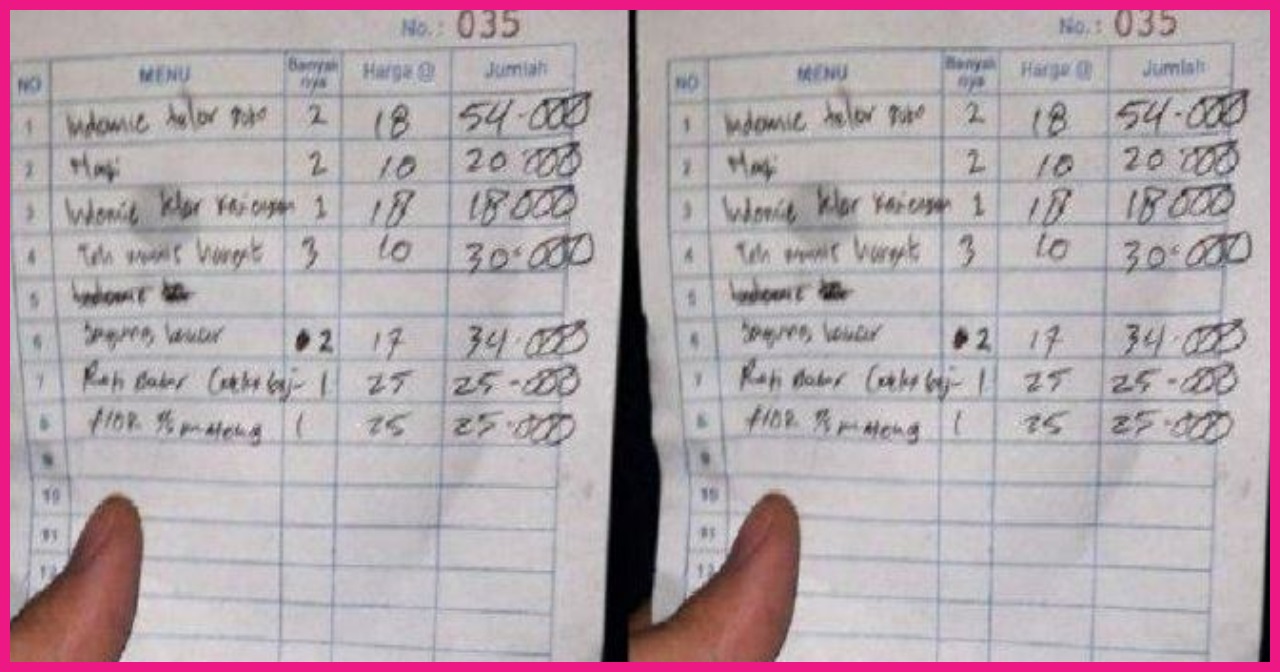 No.: 035
NO MENU Banyak nya Harga @ Jumlah
1 Indomie telor 2 18 54.000
2 2 10 20.000
3 Indomie 1 18 18000
4 Teh manis hangat 3 10 30.000
5 Indomie
6 Jagung bakar 2 17 34.000
7 Roti Bakar 1 25 25-000
8 1 25 25.000
9
10
11
12
No.: 035
NO MENU Banyak nya Harga @ Jumlah
1 Indomie telor 2 18 54.000
2 2 10 20.000
3 Indomie 1 18 18000
4 Teh manis hangat 3 10 30.000
5 Indomie
6 Jagung bakar 2 17 34.000
7 Roti Bakar 1 25 25-000
8 1 25 25.000
9
10
11
12